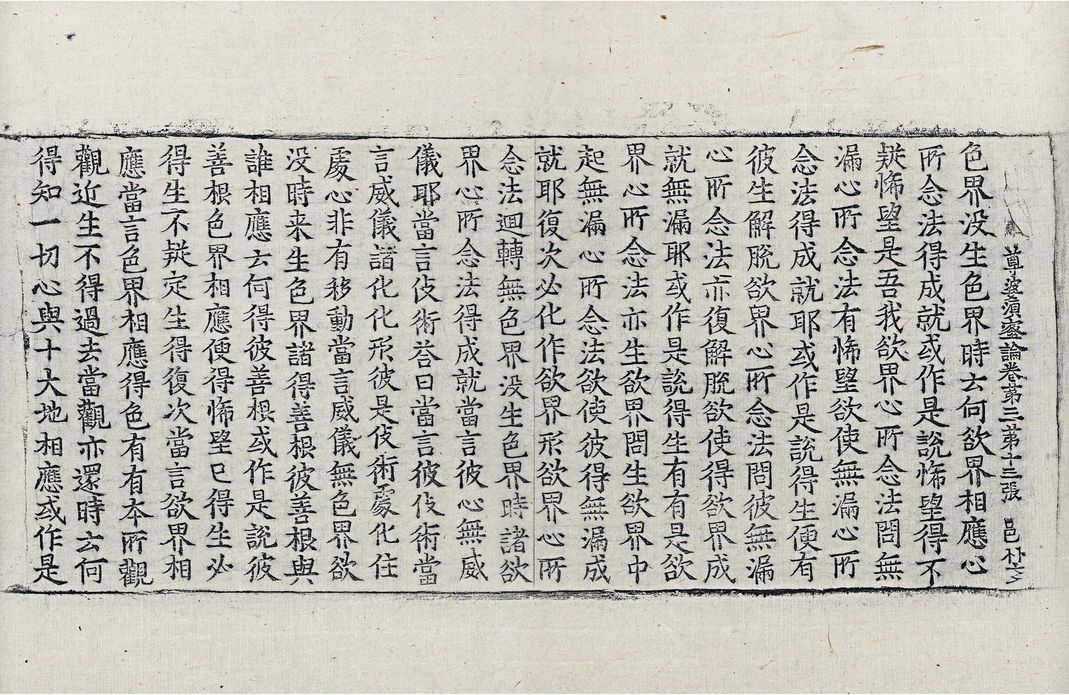 尊婆須蜜論卷第三 第十三張 邑
色界没生色界時云何欲界相應心
所念法得成就或作是說悕望得不
疑悕望是吾我欲界心所念法問無
漏心所念法有悕望欲使無漏心所
念法得成就耶或作是說得生便有
彼生解脫欲界心所念法問彼無漏
心所念法亦復解脫欲使得欲界成
就無漏耶或作是說得生有有是欲
界心所念法亦生欲界問生欲界中
起無漏心所念法欲使彼得無漏成
就耶復次必化作欲界形欲界心所
念法迴轉無色界没生色界時諸欲
界心所念法得成就當言彼心無威
儀耶當言伎術荅曰當言彼伎術當
言威儀諸化化形彼是伎術處化住
處心非有移動當言威儀無色界欲
没時来生色界諸得善根彼善根與
誰相應云何得彼善根或作是說彼
善根色界相應便得悕望已得生必
得生不疑定生得復次當言欲界相
應當言色界相應得色有有本所觀
觀近生不得過去當觀亦還時云何
得知一切心與十大地相應或作是